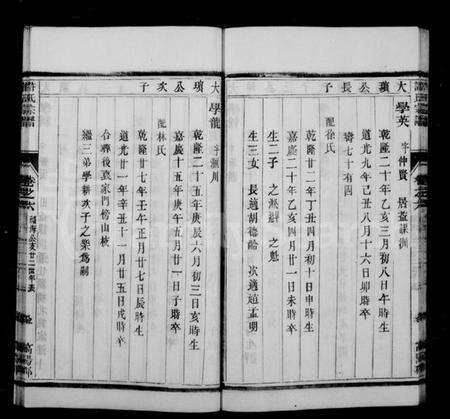 大學英 字仲賢 居益課洲
璜 乾隆二十年乙亥三月初八日午時生
公 道光九年己丑八月十六日卯時卒
長 壽七十有四
子 配徐氏
乾隆二十二年丁丑四月初十日申時生
嘉慶二十一年丙子四月廿一日未時卒
生二子 之 之魁
生三女 長適胡德齡 次適趙孟明
大學龍 字 川
璜 乾隆二十五年庚辰六月初三日亥時生
公 嘉慶十五年庚午五月廿一日子時卒
次 配林氏
子 乾隆廿七年壬午正月廿七日辰時生
道光廿一年辛丑十一月廿五日戌時卒
合葬後莫家門傍山枝
繼三弟學耕次子之樂為嗣
卷之六
卷之六